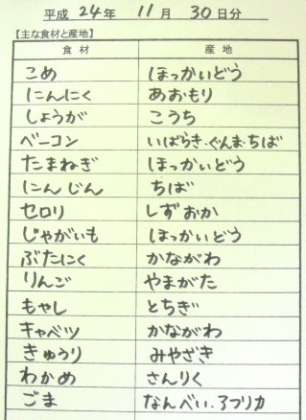 平成 24年 11月 30日分
【主な食材と産地】
食材 産地
こめ ほっかいどう
にんにく あおもり
しょうが こうち
ベーコン いばらき・ぐんま・ちば
たまねぎ ほっかいどう
にんじん ちば
セロリ しずおか
じゃがいも ほっかいどう
ぶたにく かながわ
りんご やまがた
もやし とちぎ
キャベツ かながわ
きゅうり みやざき
わかめ さんりく
ごま なんべい・アフリカ